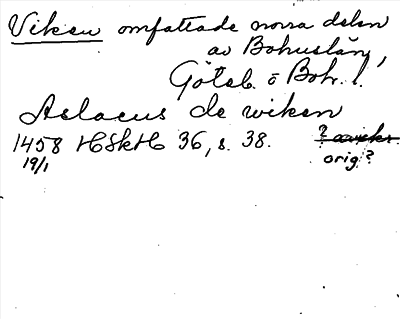 Viken omfattade norra delen
av Bohuslän,
Göteb. o Boh. l.
Aslacus de wiken
1458 HSkH 36, s. 38. ?
19/1 orig?